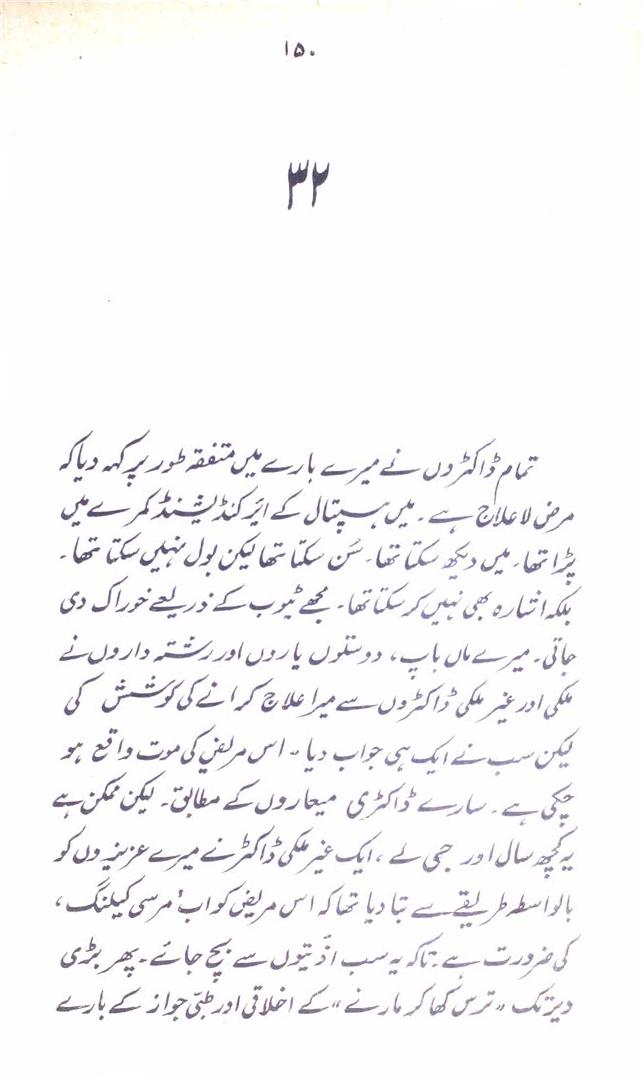 ۱۵۰
۳۲
تمام ڈاکٹروں نے میرے بارے میں متفقہ طور پر کہہ دیا کہ
مرض لاعلاج ہے۔ میں ہسپتال کے ائر کنڈیشنڈ کمرے میں
پڑا تھا۔ میں دیکھ سکتا تھا۔ سُن سکتا تھا لیکن بول نہیں سکتا تھا۔
بلکہ اشارہ بھی نہیں کر سکتا تھا۔ مجھے ٹیوب کے ذریعے خوراک دی
جاتی۔ میرے ماں باپ، دوستوں یاروں اور رشتہ داروں نے
ملکی اور غیر ملکی ڈاکٹروں سے میرا علاج کرانے کی کوشش کی
لیکن سب نے ایک ہی جواب دیا۔ اس مریض کی موت واقع ہو
چکی ہے۔ سارے ڈاکٹری معیاروں کے مطابق۔ لیکن ممکن ہے
یہ کچھ سال اور جی لے، ایک غیر ملکی ڈاکٹر نے میرے عزیزوں کو
بالواسطہ طریقے سے بتا دیا تھا کہ اس مریض کو اب ’مرسی کیلنگ‘
کی ضرورت ہے۔ تاکہ یہ سب اذّیتوں سے بچ جائے۔ پھر بڑی
دیر تک ”ترس کھا کر مارنے“ کے اخلاقی اور طبّی جواز کے بارے